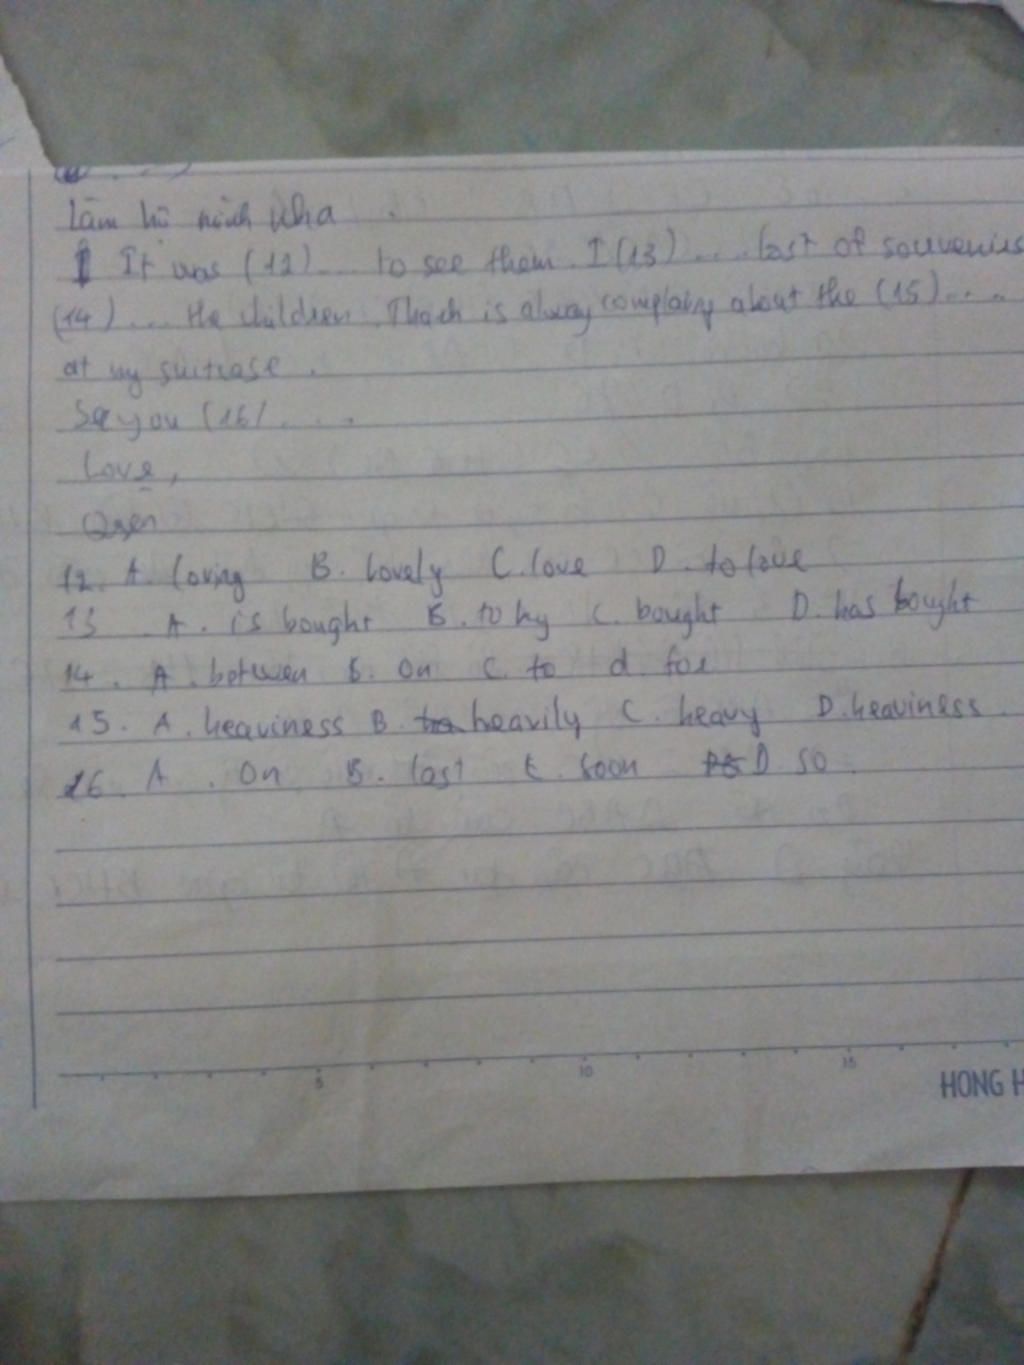 làm hộ mình nha
It was (12) .... to see them. I (13) .... last of souvenies
(14) .... the children. Thach is alway complaing about the (15) ....
at my suitcase.
See you (16) ....
Love,
12. A. loving B. lovely C. love D. to love
13 A. is bought B. to by C. bought D. has bought
14. A. between B. on C. to d. for
15. A. heaviness B. heavily C. heavy D. heaviness
16. A. On B. last C. soon D so
5 10 15
HONG H